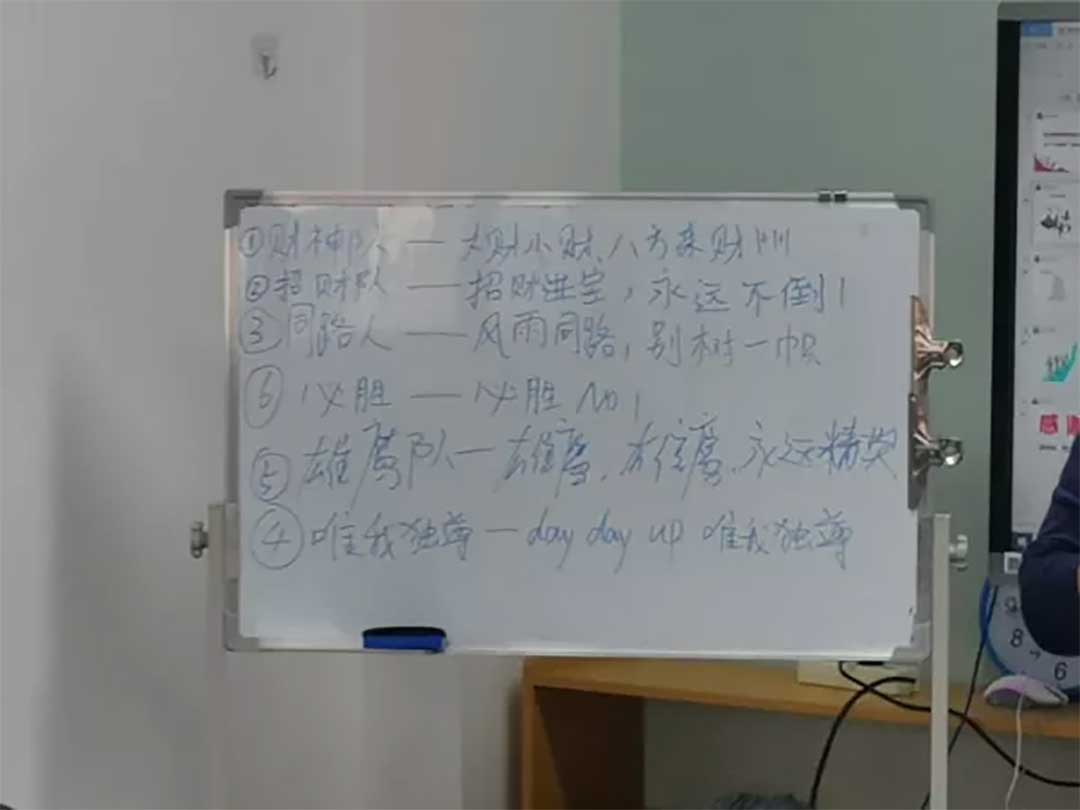 ①财神队 — 大财小财、八方来财!!!!
②招财队 — 招财进宝，永远不倒!
③同路人 — 风雨同路，别树一帜
⑥ 必胜 — 必胜 NO 1
⑤雄鹰队 — 雄鹰、雄鹰、永远精英
④ 唯我独尊 — day day up 唯我独尊
感
9
8
6